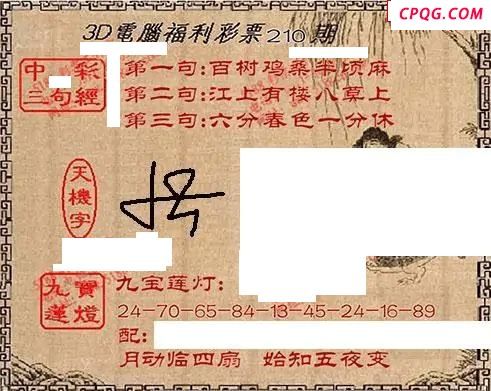 CPQG.COM
3D電腦福利彩票210期
中彩
三句經
第一句:百树鸡桑半顷麻
第二句:江上有楼八莫上
第三句:六分春色一分休
天機字
九寳
蓮燈
九宝莲灯:
24-70-65-84-13-45-24-16-89
配:
月动临四扇 始知五夜变